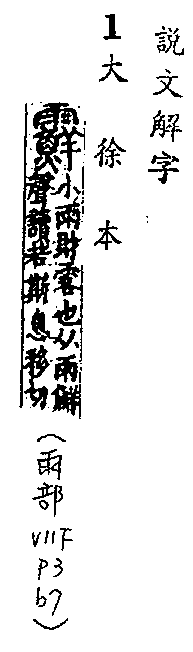 説文解字
1大徐本
䨘小雨財零也从雨鮮
聲讀若斯息移切
(雨部VII下P3b7)